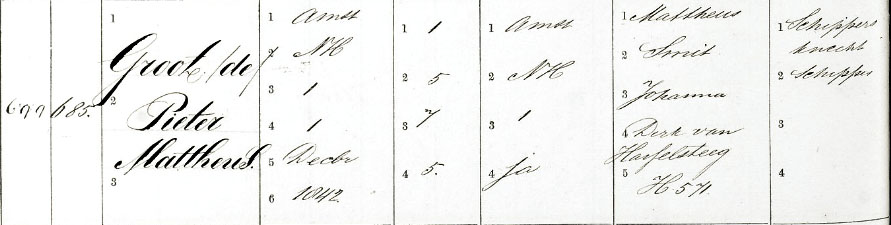 677
685.
1
Groot, (de)
2
Pieter
Mattheus.
3
1 Amst
2 NH
3 1
4 1
5 Decbr
6 1842
1 1
2 5
3 7
4 5.
1 Amst
2 NH
3 1
4 ja
1 Mattheus
2 Smit
3 Johanna
4 Derk van
Hasselsteeg
5 H 571
1 Schippers
knecht
2 Schipper
3
4